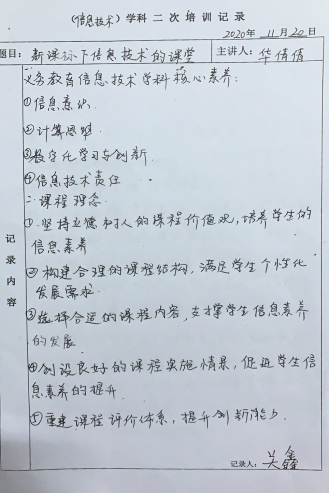 （信息技术）学科二次培训记录
2020年 11月20日
题目： 新课标下信息技术的课堂 主讲人： 华倩倩
义务教育信息技术学科核心素养：
①信息意识.
②计算思维.
③数字化学习与创新.
④信息技术责任
二. 课程理念.
①.坚持立德树人的课程价值观，培养学生的
信息素养
②构建合理的课程结构，满足学生个性化
发展需求.
③选择合适的课程内容，支撑学生信息素养
的发展
④创设良好的课程实施情景，促进学生信
息素养的提升.
⑤重建课程评价体系，提升创新能力.
记录内容
记录人： 吴鑫